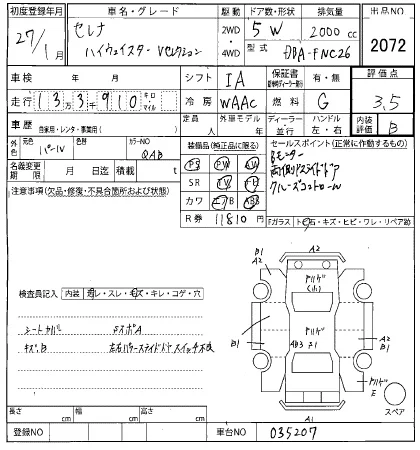 初度登録年月 車名・グレード 駆動 ドア数・形状 排気量 出品NO
27/1月 セレナ 2WD 5 W 2000 cc 2072
ハイウェイスター Vセレクション 4WD 型式 DBA-FNC26
車検 年 月 シフト IA 保証書 有・無 評価点
走行 133千910 キロ マイル 冷房 WAAC 燃料 G 3.5
車歴 自家用・レンタ・事業用( ) 定員 人 外車モデル 年 ディーラー 並行 ハンドル 左・右 内装評価 B
外色 元色 パール 色替 カラーNO QAB 装備品(純正品に限る) セールスポイント(正常に作動するもの)
名義変更期限 月 日迄 積載 t PS PW Bモニター
注意事項(欠品・修復・不具合箇所および状態) SR 両側パワースライドドア
カワ エアB ABS クルーズコントロール
R券 11810 円 Fガラス トビ石・キズ・ヒビ・ワレ・リペア跡
B1 A2
A2
ドリハゲ (小)
検査員記入 内装 ヨゴレ・スレ・キズ・キレ・コゲ・穴
ドリハゲ
シートカバー
B1 AB3 A2 B1
キズB 左右パワースライドドアスイッチ不良
ドリハゲ E
スペア
A1
長さ cm 幅 cm 高さ cm
登録NO 車台NO 035207